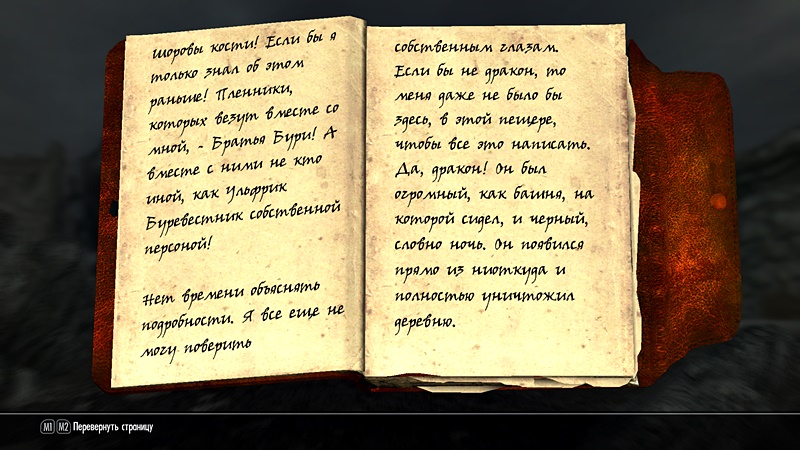 Шоровы кости! Если бы я
только знал об этом
раньше! Пленники,
которых везут вместе со
мной, - Братья Бури! А
вместе с ними не кто
иной, как Ульфрик
Буревестник собственной
персоной!
Нет времени объяснять
подробности. Я все еще не
могу поверить
собственным глазам.
Если бы не дракон, то
меня даже не было бы
здесь, в этой пещере,
чтобы все это написать.
Да, дракон! Он был
огромный, как башня, на
которой сидел, и черный,
словно ночь. Он появился
прямо из ниоткуда и
полностью уничтожил
деревню.
M1 M2 Перевернуть страницу